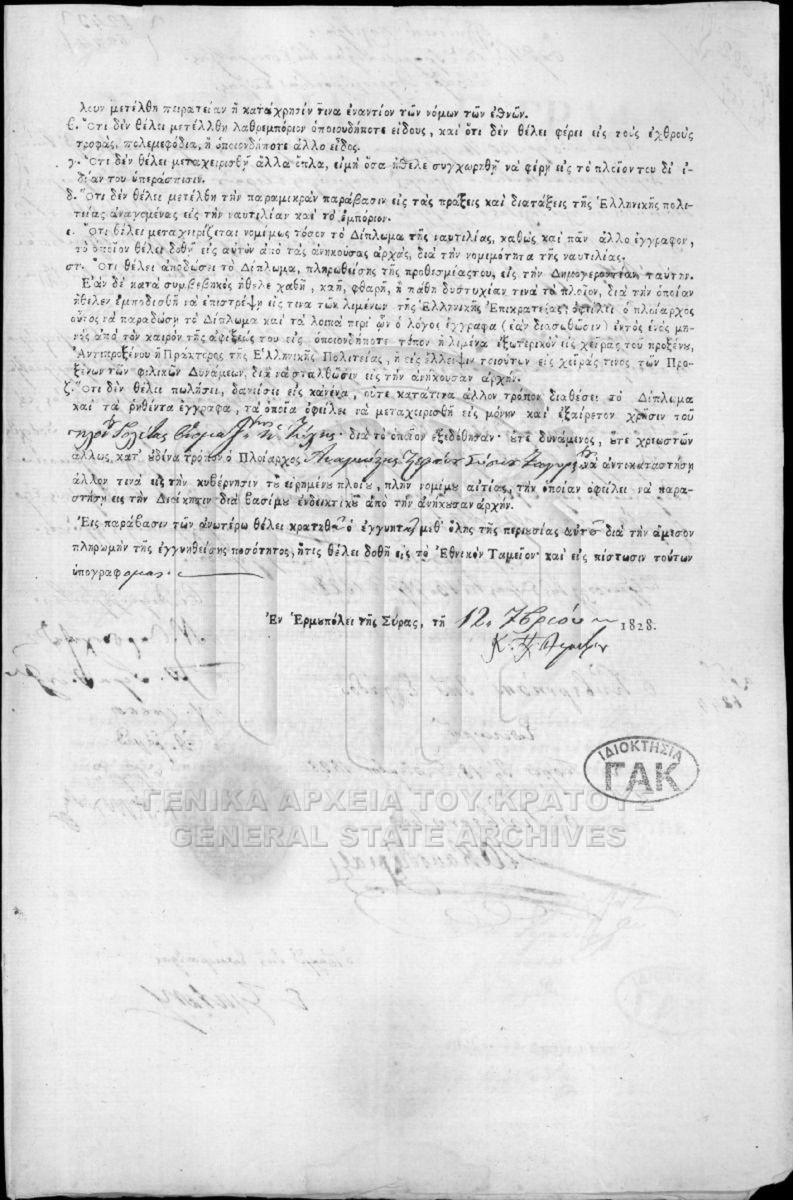 λουν μετέλθη πειρατείαν ἢ κατάχρησίν τινα ἐναντίον τῶν νόμων τῶν ἐθνῶν.
β. Ὅτι δὲν θέλει μετέλθη λαθρεμπόριον ὁποιουδήποτε εἴδους, καὶ ὅτι δὲν θέλει φέρει εἰς τοὺς ἐχθροὺς
τροφὰς, πολεμεφόδια, ἢ ὁποιονδήποτε ἄλλο εἶδος.
γ. Ὅτι δὲν θέλει μεταχειρισθῆ ἄλλα ὅπλα, εἰμὴ ὅσα ἤθελε συγχωρηθῆ νὰ φέρῃ εἰς τὸ πλοῖόν του δι' ἰ-
δίαν του ὑπεράσπισιν.
δ. Ὅτι δὲν θέλει μετέλθη τὴν παραμικρὰν παράβασιν εἰς τὰς πράξεις καὶ διατάξεις τῆς Ἑλληνικῆς πολι-
τείας ἀναγομένας εἰς τὴν ναυτιλίαν καὶ τὸ ἐμπόριον.
ε. Ὅτι θέλει μεταχειρίζεται νομίμως τόσον τὸ Δίπλωμα τῆς ναυτιλίας, καθὼς καὶ πᾶν ἄλλο ἔγγραφον,
τὸ ὁποῖον θέλει δοθῆ εἰς αὐτὸν ἀπὸ τὰς ἀνηκούσας ἀρχὰς, διὰ τὴν νομιμότητα τῆς ναυτιλίας.
στ. Ὅτι θέλει ἀποδώσει τὸ Δίπλωμα, πληρωθείσης τῆς προθεσμίας του, εἰς τὴν Δημογεροντίαν ταύτην.
Ἐὰν δὲ κατὰ συμβεβηκὸς ἤθελε χαθῆ, καῇ, φθαρῆ, ἢ πάθῃ δυστυχίαν τινὰ τὸ πλοῖον, διὰ τὴν ὁποίαν
ἤθελεν ἐμποδισθῆ νὰ ἐπιστρέψῃ εἴς τινα τῶν λιμένων τῆς Ἑλληνικῆς Ἐπικρατείας, ὀφείλει ὁ πλοίαρχος
οὗτος νὰ παραδώσῃ τὸ Δίπλωμα καὶ τὰ λοιπὰ περὶ ὧν ὁ λόγος ἔγγραφα (ἐὰν διασωθῶσιν) ἐντὸς ἑνὸς μη-
νὸς ἀπὸ τὸν καιρὸν τῆς ἀφίξεώς του εἰς ὁποιονδήποτε τόπον ἢ λιμένα ἐξωτερικὸν εἰς χεῖρας τοῦ προξένου,
Ἀντιπροξένου ἢ Πράκτορος τῆς Ἑλληνικῆς Πολιτείας, ἢ εἰς ἔλλειψιν τοιούτων εἰς χεῖρας τινὸς τῶν Προ-
ξένων τῶν φιλικῶν Δυνάμεων, διὰ νὰ σταλθῶσιν εἰς τὴν ἀνήκουσαν ἀρχήν.
ζ. Ὅτι δὲν θέλει πωλήσει, δανείσει εἰς κανένα, οὔτε κατά τινα ἄλλον τρόπον διαθέσει τὸ Δίπλωμα
καὶ τὰ ῥηθέντα ἔγγραφα, τὰ ὁποῖα ὀφείλει νὰ μεταχειρισθῆ εἰς μόνην καὶ ἐξαίρετον χρῆσιν τοῦ
διὰ τὸ ὁποῖον ἐξεδόθησαν· οὔτε δυνάμενος, οὔτε χρεωστῶν
ἄλλως κατ' οὐδένα τρόπον ὁ Πλοίαρχος νὰ ἀντικαταστήσῃ
ἄλλον τινὰ εἰς τὴν κυβέρνησιν τοῦ εἰρημένου πλοίου, πλὴν νομίμου αἰτίας, τὴν ὁποίαν ὀφείλει νὰ παρα-
στήσῃ εἰς τὴν Διοίκησιν διὰ βασίμου ἐνδεικτικοῦ ἀπὸ τὴν ἀνήκουσαν ἀρχήν.
Εἰς παράβασιν τῶν ἀνωτέρω θέλει κρατηθῆ ὁ ἐγγυητὴς μεθ' ὅλης τῆς περιουσίας αὐτοῦ διὰ τὴν ἄμεσον
πληρωμὴν τῆς ἐγγυηθείσης ποσότητος, ἥτις θέλει δοθῆ εἰς τὸ Ἐθνικὸν Ταμεῖον· καὶ εἰς πίστωσιν τούτων
ὑπογράφομαι.
Ἐν Ἑρμουπόλει τῆς Σύρας, τῇ 12 7βρίου 1828.
ΙΔΙΟΚΤΗΣΙΑ
ΓΑΚ
ΓΕΝΙΚΑ ΑΡΧΕΙΑ ΤΟΥ ΚΡΑΤΟΥΣ
GENERAL STATE ARCHIVES